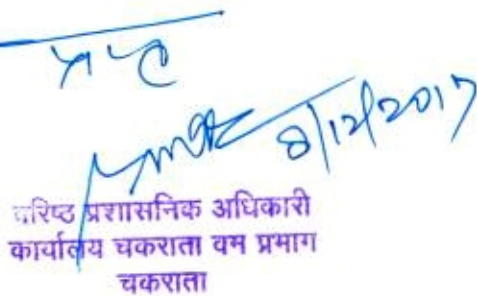 प्राप्त
8/12/2017
वरिष्ठ प्रशासनिक अधिकारी
कार्यालय चकराता वन प्रभाग
चकराता